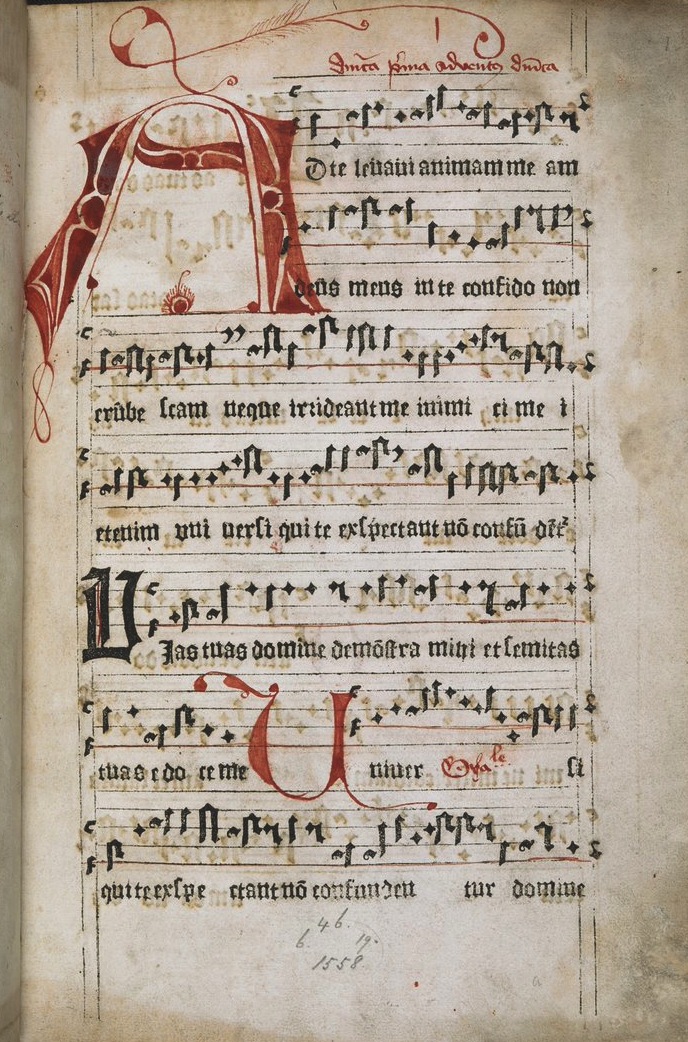 dm̄ca p̄ma advent9 dm̄ca
AD te levavi animam me am
deus meus in te confido non
erube scam neque irrideant me inimi ci me i
etenim uni versi qui te exspectant nō confū
VJas tuas domine demōstra mihi et semitas
tuas e do ce me Univer si
qui te exspe ctant nō confunden tur domine
46.
6. 19.
1558.